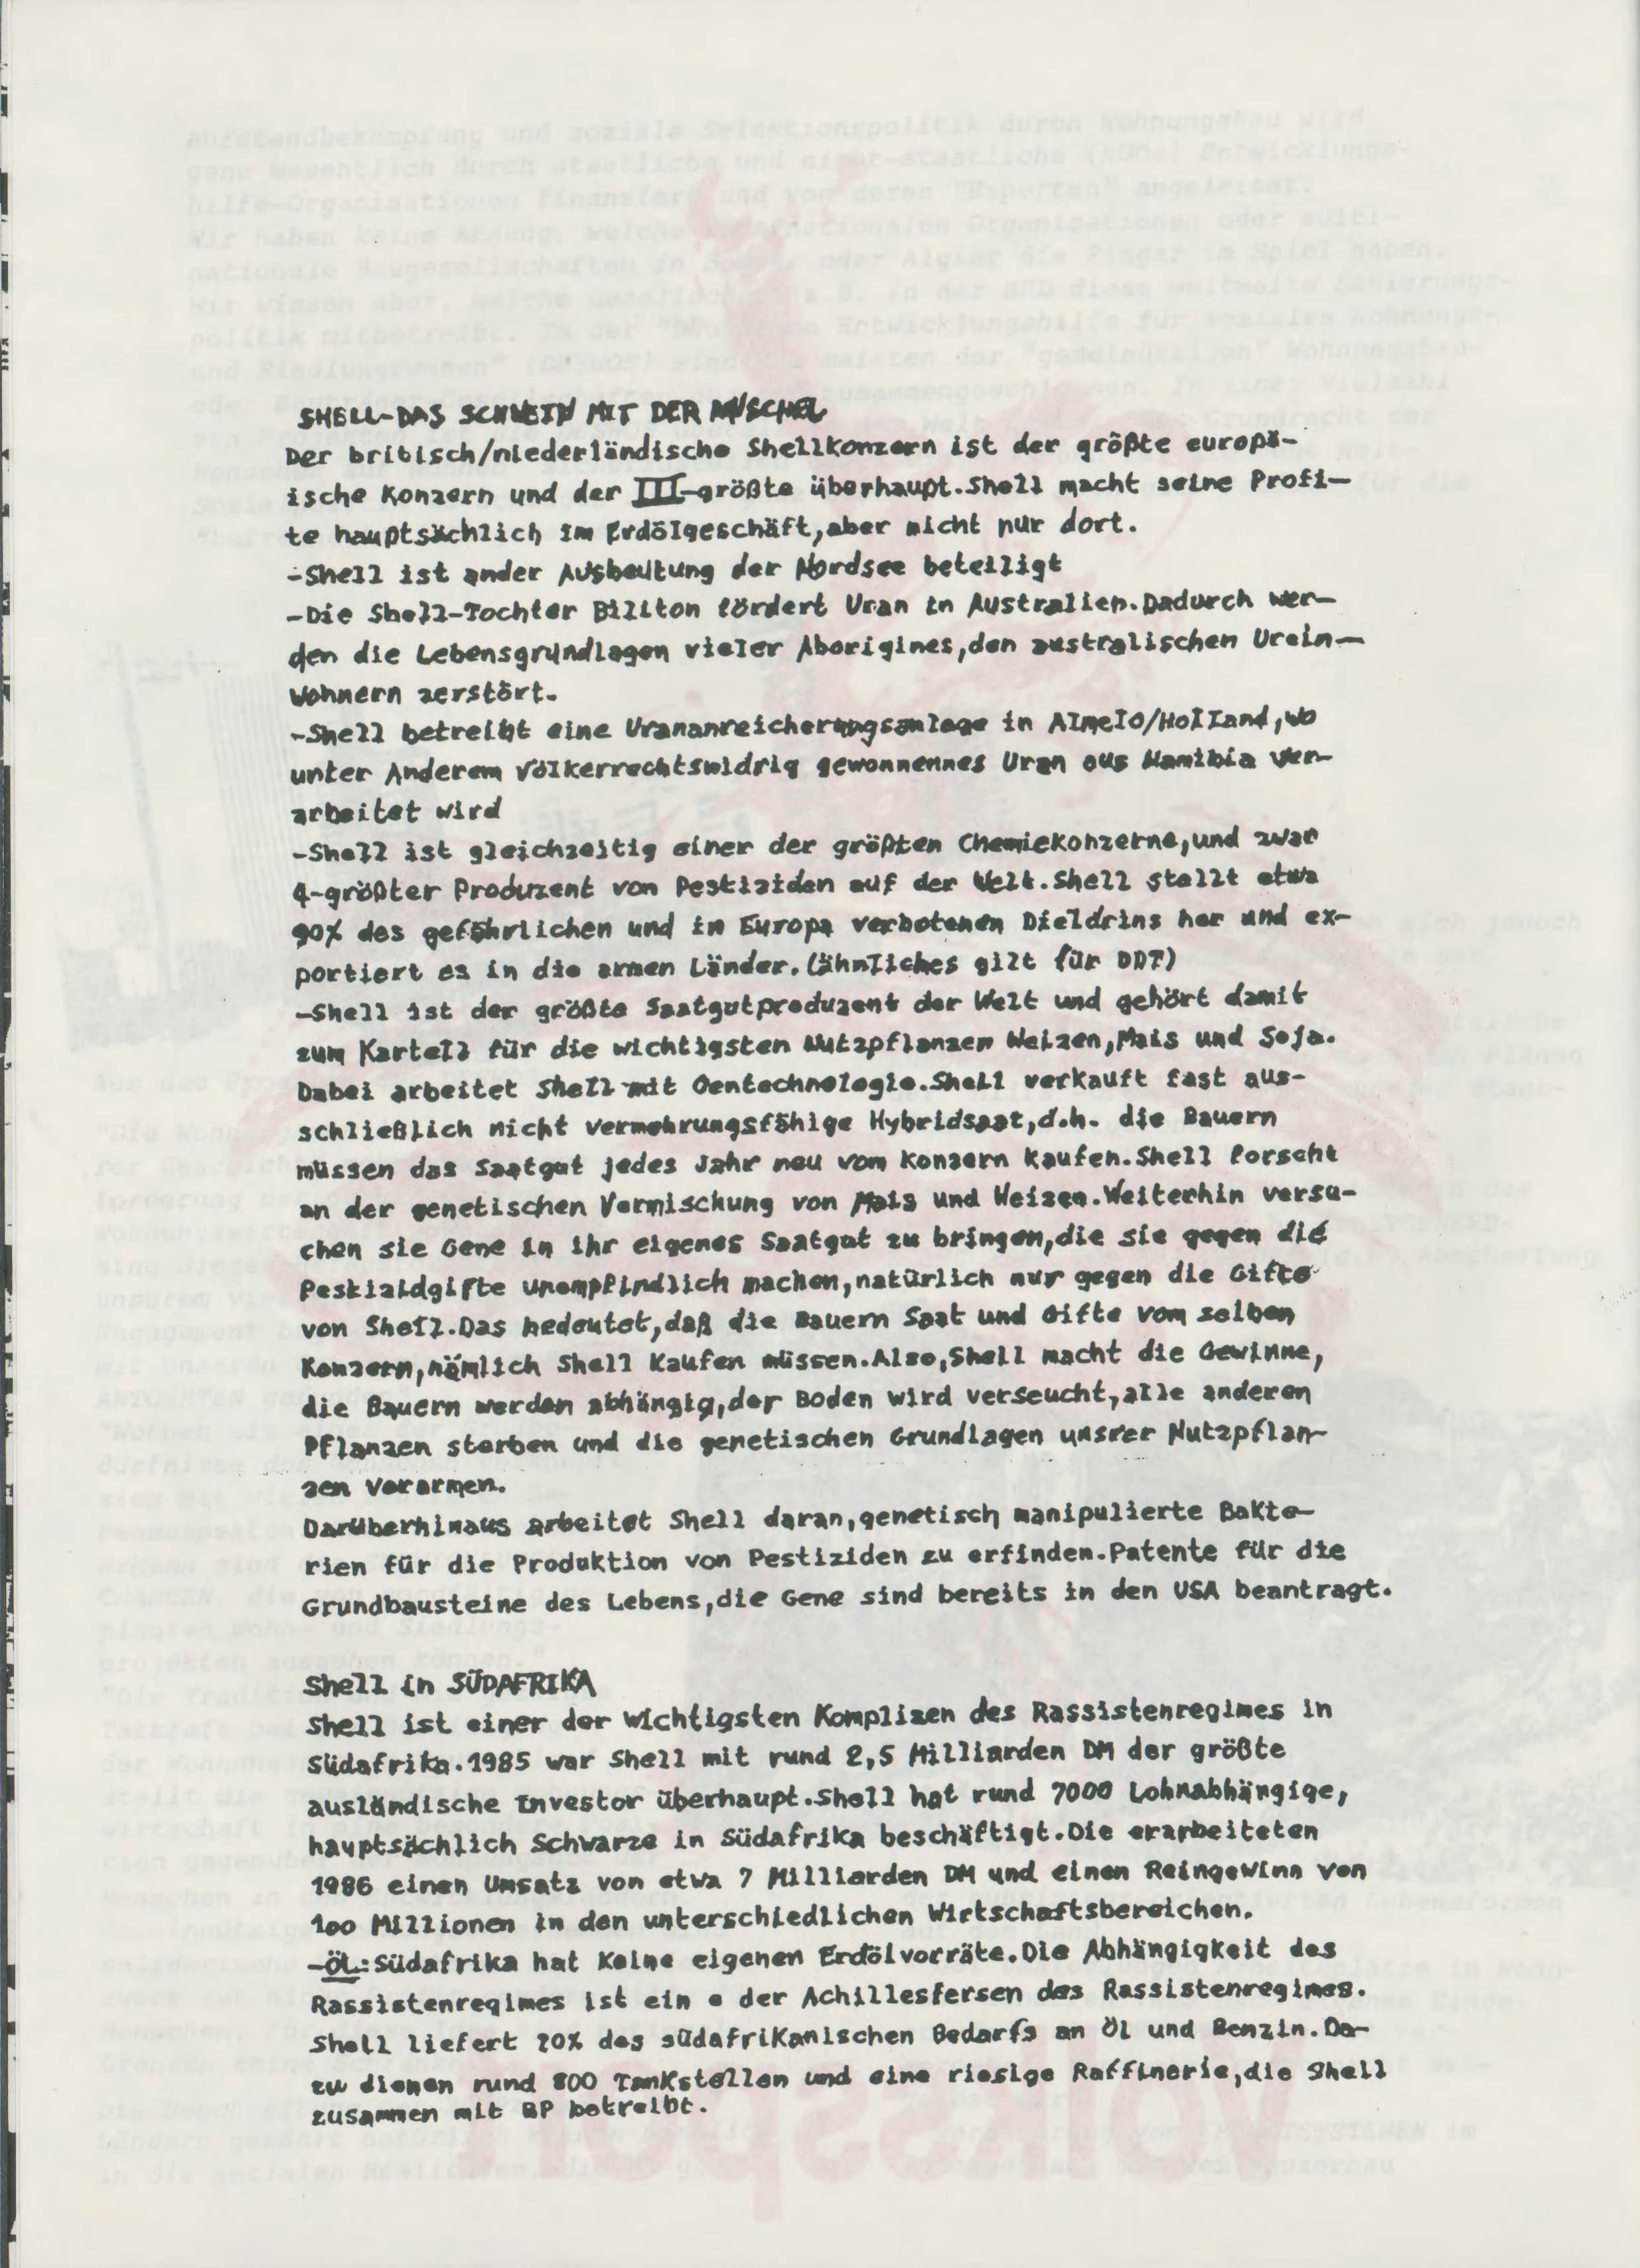 SHELL-DAS SCHWEIN MIT DER MUSCHEL
Der britisch/niederländische Shellkonzern ist der größte europä-
ische Konzern und der III-größte überhaupt.Shell macht seine Profi-
te hauptsächlich im Erdölgeschäft,aber nicht nur dort.
-Shell ist ander Ausbeutung der Nordsee beteiligt
-Die Shell-Tochter Billton fördert Uran in Australien.Dadurch wer-
den die Lebensgrundlagen vieler Aborigines,den australischen Urein-
wohnern zerstört.
-Shell betreibt eine Urananreicherungsanlage in Almelo/Holland,wo
unter Anderem völkerrechtswidrig gewonnennes Uran aus Namibia ver-
arbeitet wird
-Shell ist gleichzeitig einer der größten Chemiekonzerne,und zwar
4-größter Produzent von Pestiziden auf der Welt.Shell stellt etwa
90% des gefährlichen und in Europa verbotenen Dieldrins her und ex-
portiert es in die armen Länder.(ähnliches gilt für DDT)
-Shell ist der größte Saatgutproduzent der Welt und gehört damit
zum Kartell für die wichtigsten Nutzpflanzen Weizen,Mais und Soja.
Dabei arbeitet Shell mit Gentechnologie.Shell verkauft fast aus-
schließlich nicht vermehrungsfähige Hybridsaat,d.h. die Bauern
müssen das Saatgut jedes Jahr neu vom Konzern kaufen.Shell forscht
an der genetischen Vermischung von Mais und Weizen.Weiterhin versu-
chen sie Gene in ihr eigenes Saatgut zu bringen,die sie gegen die
Pestizidgifte unempfindlich machen,natürlich nur gegen die Gifte
von Shell.Das bedeutet,daß die Bauern Saat und Gifte vom selben
Konzern,nämlich Shell kaufen müssen.Also,Shell macht die Gewinne,
die Bauern werden abhängig,der Boden wird verseucht,alle anderen
Pflanzen sterben und die genetischen Grundlagen unsrer Nutzpflan-
zen verarmen.
Darüberhinaus arbeitet Shell daran,genetisch manipulierte Bakte-
rien für die Produktion von Pestiziden zu erfinden.Patente für die
Grundbausteine des Lebens,die Gene sind bereits in den USA beantragt.
Shell in SÜDAFRIKA
Shell ist einer der wichtigsten Komplizen des Rassistenregimes in
Südafrika.1985 war Shell mit rund 2,5 Milliarden DM der größte
ausländische Investor überhaupt.Shell hat rund 7000 Lohnabhängige,
hauptsächlich Schwarze in Südafrika beschäftigt.Die erarbeiteten
1986 einen Umsatz von etwa 7 Milliarden DM und einen Reingewinn von
100 Millionen in den unterschiedlichen Wirtschaftsbereichen.
-ÖL:Südafrika hat keine eigenen Erdölvorräte.Die Abhängigkeit des
Rassistenregimes ist ein e der Achillesfersen des Rassistenregimes.
Shell liefert 20% des südafrikanischen Bedarfs an Öl und Benzin.Da-
zu dienen rund 800 Tankstellen und eine riesige Raffinerie,die Shell
zusammen mit BP betreibt.